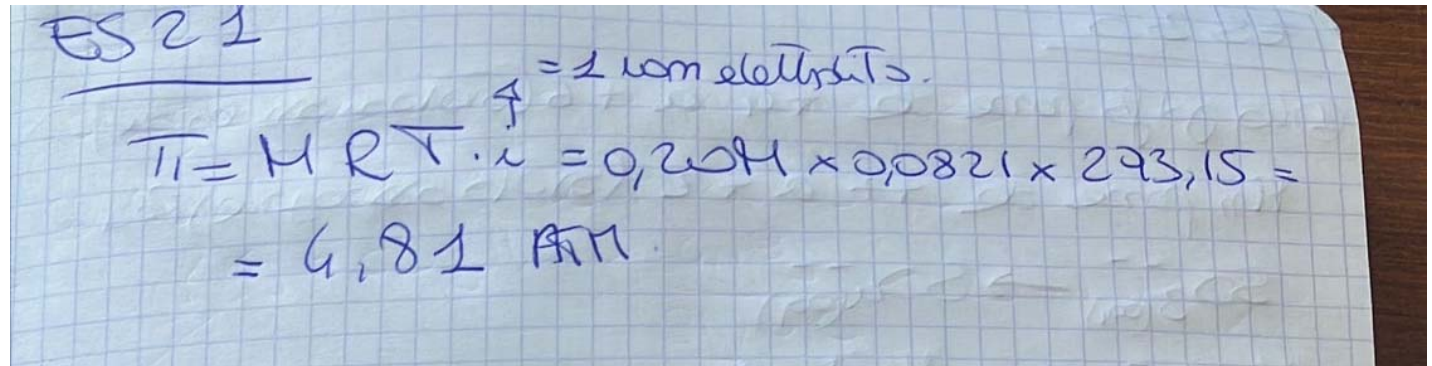 ES 21
= 1 non elettrolito.
π = M R T · i = 0,20M × 0,0821 × 293,15 =
= 4,81 ATM